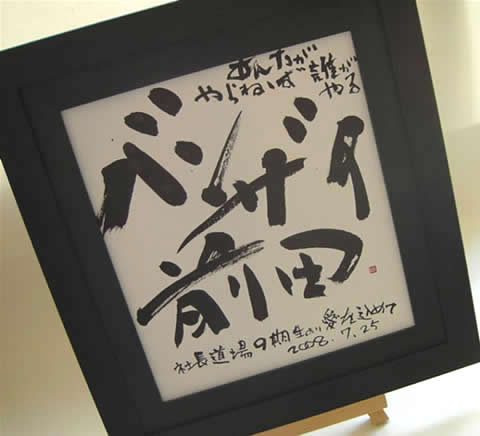 あんたが
やらねば誰が
やる
バンザイ
前田
社長道場9期生より愛を込めて
2008.7.25